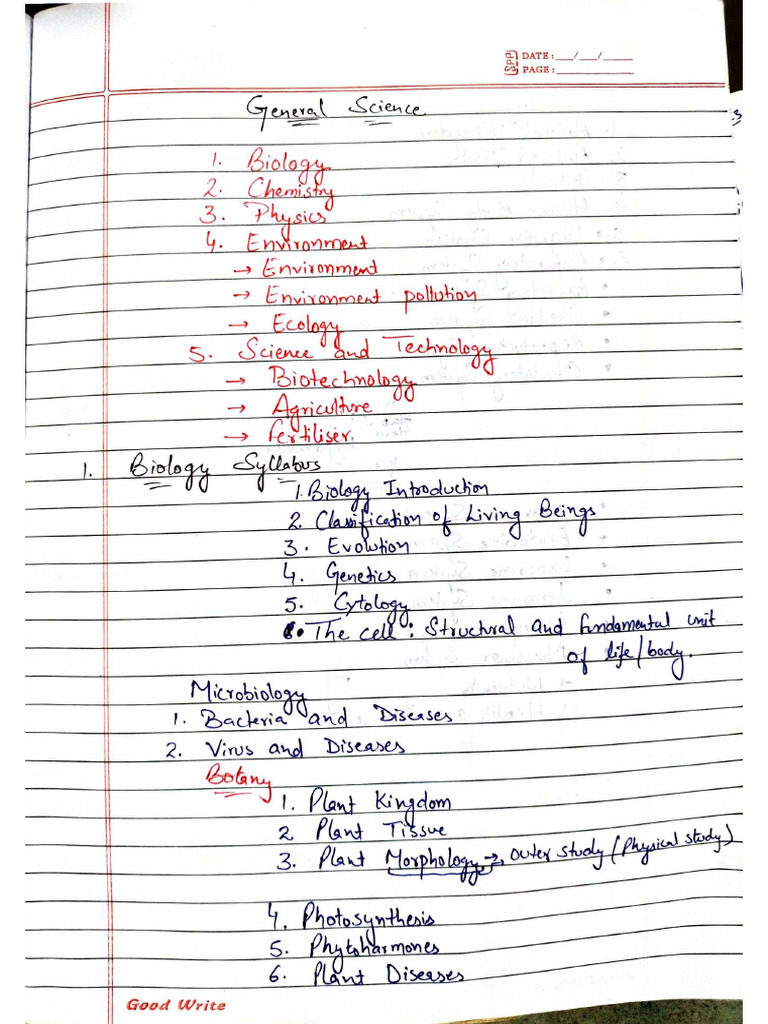 SPP DATE: __/__/____
PAGE: ________
General Science
1. Biology
2. Chemistry
3. Physics
4. Environment
→ Environment
→ Environment pollution
→ Ecology
5. Science and Technology
→ Biotechnology
→ Agriculture
→ Fertiliser.
1. Biology Syllabus
1. Biology Introduction
2. Classification of Living Beings
3. Evolution
4. Genetics
5. Cytology
6. The cell : Structural and fundamental unit
of life/body.
Microbiology
1. Bacteria and Diseases
2. Virus and Diseases
Botany
1. Plant Kingdom
2 Plant Tissue
3. Plant Morphology → outer study (Physical study)
4. Photosynthesis
5. Phytoharmones
6. Plant Diseases
Good Write